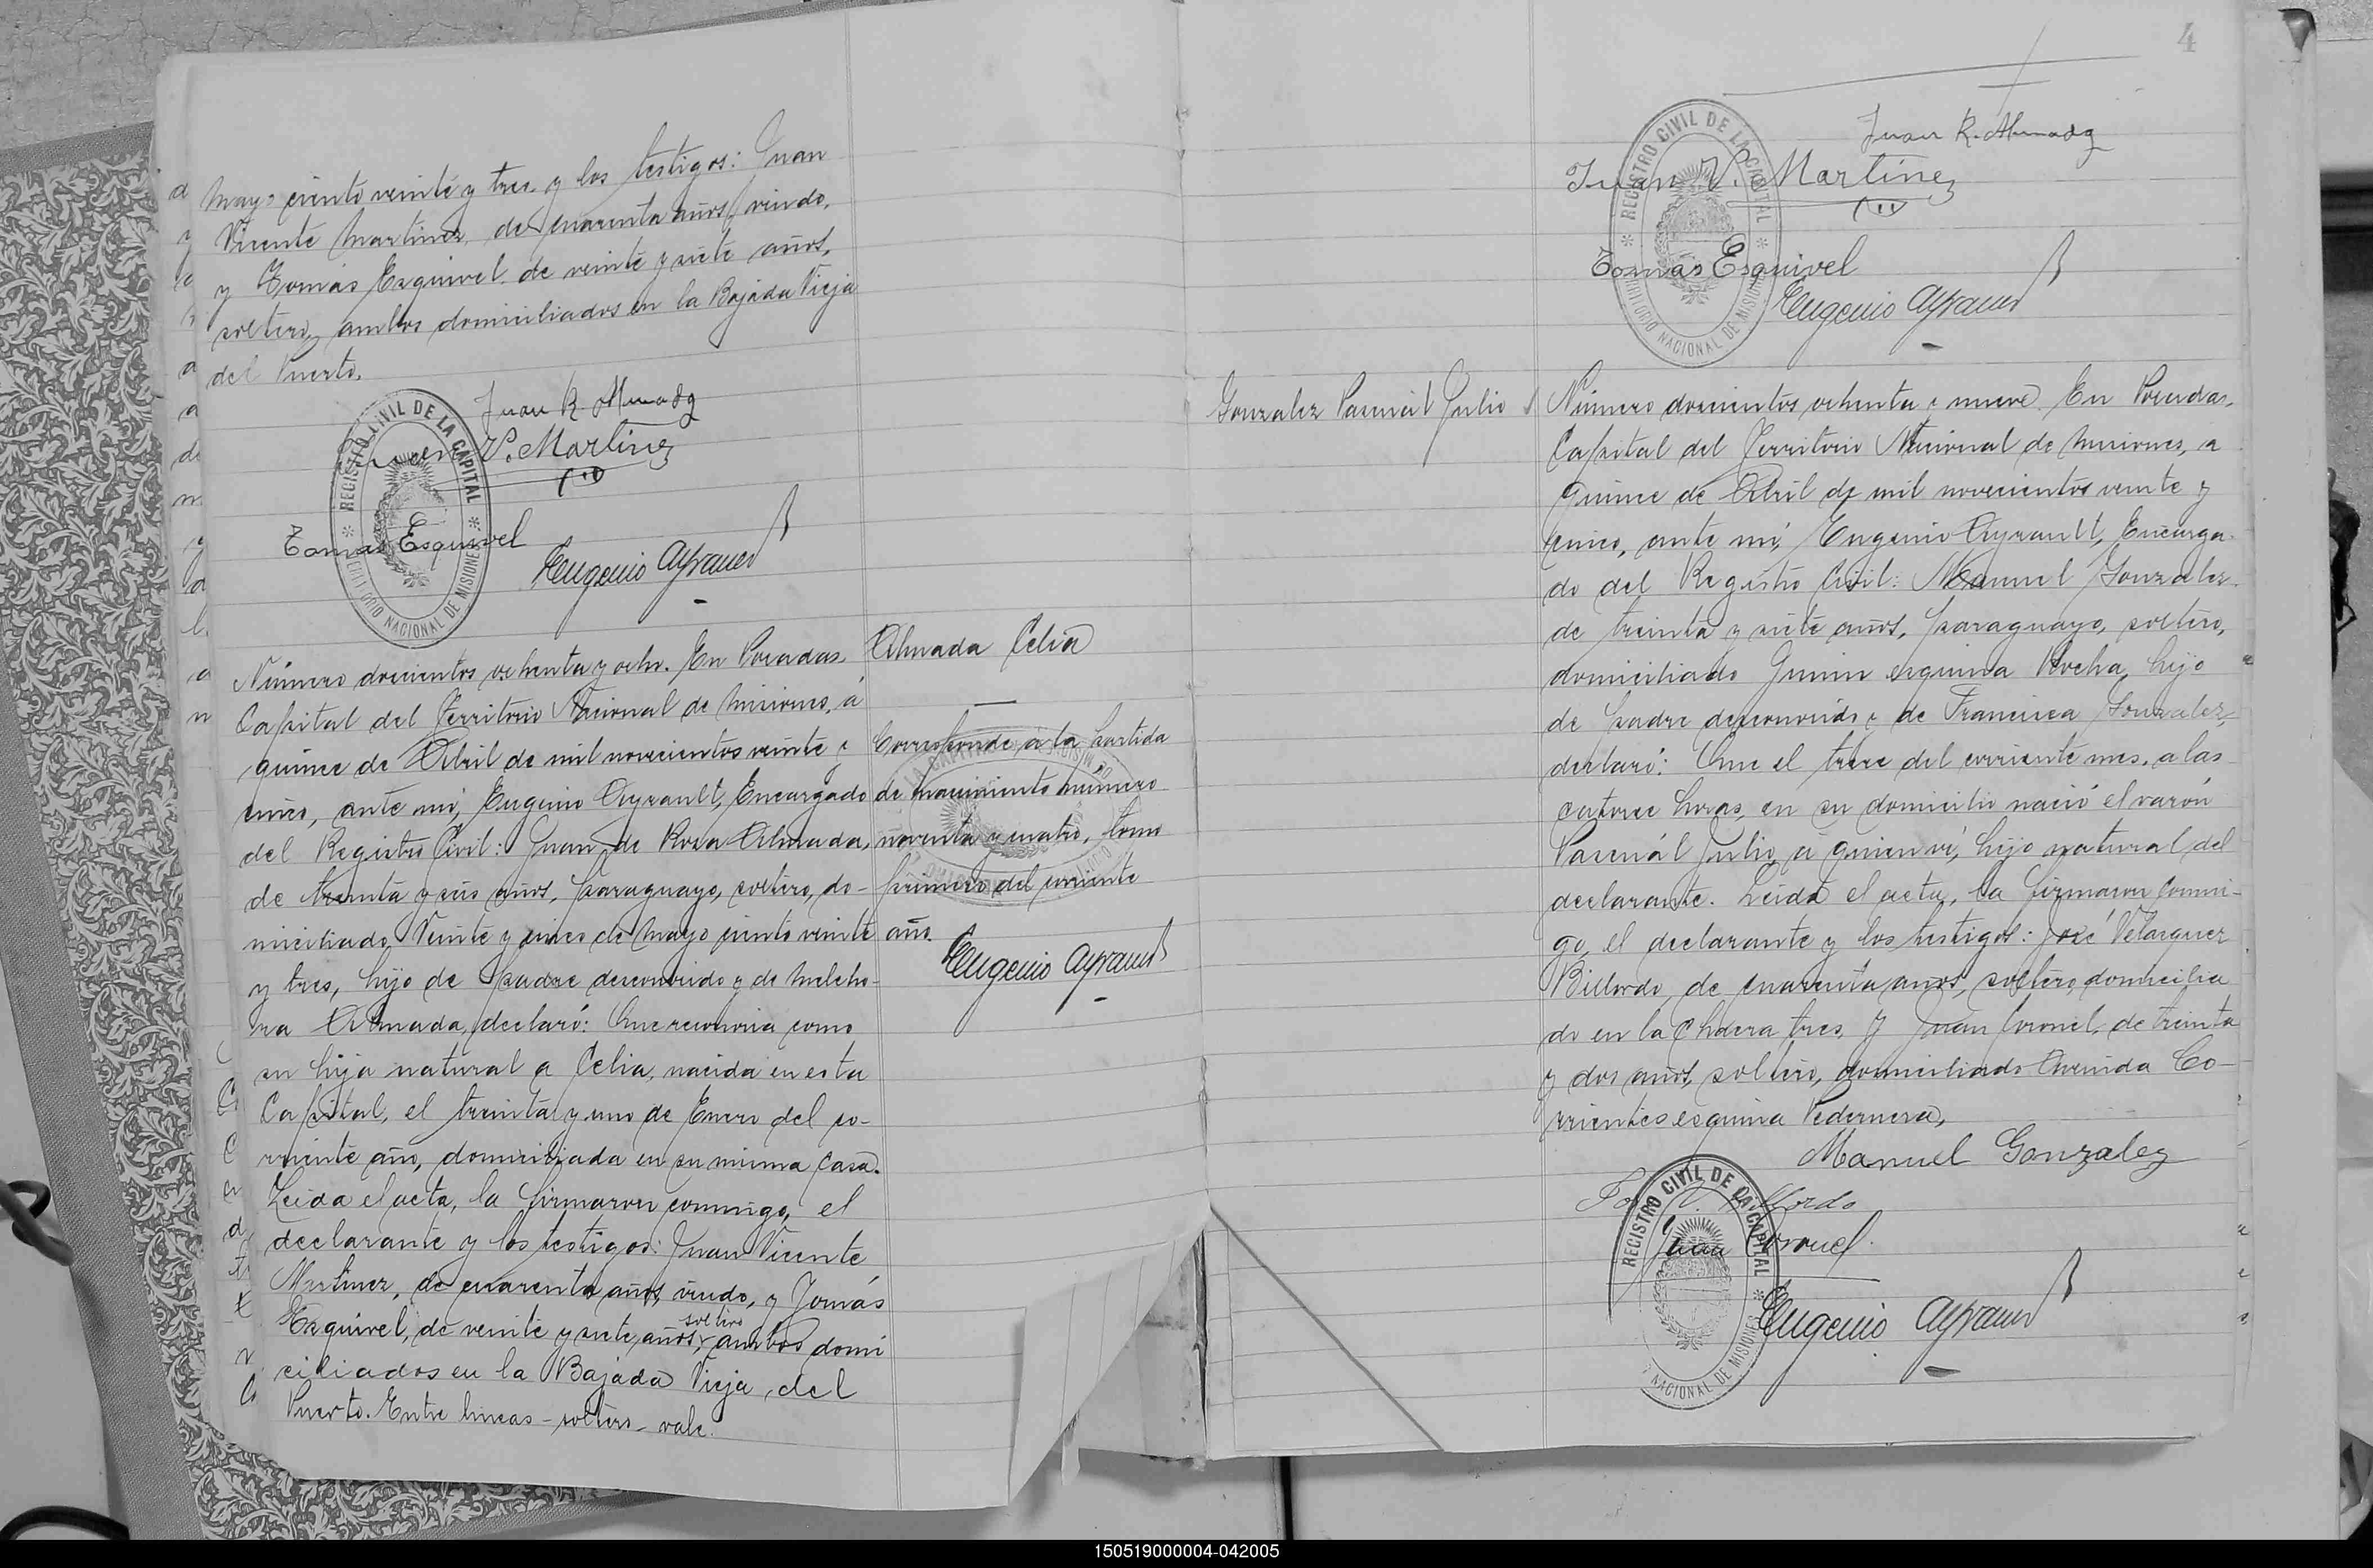 Mayo ciento veinte y tres, y los testigos: Juan
Vicente Martinez, de cuarenta años, viudo,
y Tomás Esquivel, de veinte y siete años,
soltero, ambos domiciliados en la Bajada Vieja
del Puerto.
Juan R. Almada
Juan V. Martinez
Tomas Esquivel
Eugenio Ayrault
REGISTRO CIVIL DE LA CAPITAL
TERRITORIO NACIONAL DE MISIONES
Número doscientos ochenta y ocho. En Posadas,
Capital del Territorio Nacional de Misiones, á
quince de Abril de mil novecientos veinte y
cinco, ante mí, Eugenio Ayrault, Encargado
del Registro Civil: Juan de Rosa Almada,
de treinta y seis años, paraguayo, soltero, do-
miciliado Veinte y cinco de Mayo ciento veinte
y tres, hijo de padre desconocido y de Melcho-
ra Almada, declaró: Que reconocia como
su hija natural a Celia, nacida en esta
Capital, el treinta y uno de Enero del co-
rriente año, domiciliada en su misma casa.
Leida el acta, la firmaron conmigo, el
declarante y los testigos: Juan Vicente
Martinez, de cuarenta años, viudo, y Tomás
Esquivel, de veinte y siete años, soltero, ambos domi
ciliados en la Bajada Vieja, del
Puerto. Entre lineas - soltero - vale.
Almada Celia
Corresponde a la partida
de nacimiento número
noventa y cuatro, tomo
primero del corriente
año.
Eugenio Ayrault
4
Juan R. Almada
Juan V. Martinez
Tomas Esquivel
Eugenio Ayrault
REGISTRO CIVIL DE LA CAPITAL
TERRITORIO NACIONAL DE MISIONES
Gonzalez Pascual Julio
Número doscientos ochenta y nueve. En Posadas,
Capital del Territorio Nacional de Misiones, a
quince de Abril de mil novecientos veinte y
cinco, ante mí, Eugenio Ayrault, Encarga-
do del Registro Civil: Manuel Gonzalez,
de treinta y siete años, paraguayo, soltero,
domiciliado Junin esquina Rocha, hijo
de padre desconocido y de Francisca Gonzalez,
declaró: Que el trece del corriente mes, a las
catorce horas, en su domicilio nació el varón
Pascuál Julio, a quien ví, hijo natural del
declarante. Leida el acta, la firmaron conmi-
go, el declarante y los testigos: José Velazquez
Billordo, de cuarenta años, soltero, domicilia
do en la Chacra tres, y Juan Coronel, de treinta
y dos años, soltero, domiciliado Avenida Co-
rrientes esquina Pedernera.
Manuel Gonzalez
Billordo
Juan Coronel
Eugenio Ayrault
REGISTRO CIVIL DE LA CAPITAL
NACIONAL DE MISIONES
150519000004-042005